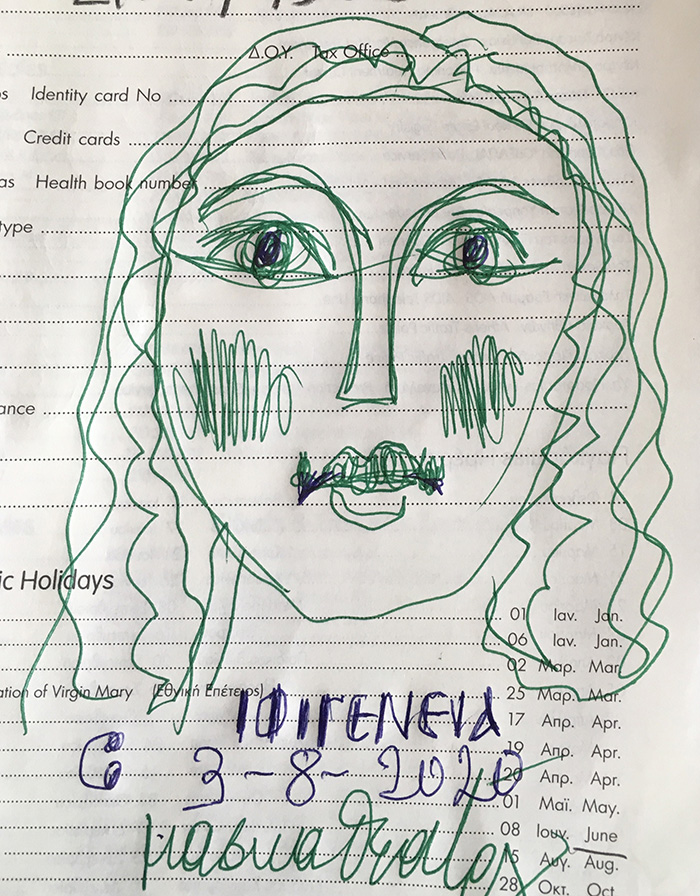 Δ.Ο.Υ. Tax Office
Identity card No
Credit cards
Health book number
type
ance
ic Holidays
01 Ιαν. Jan.
06 Ιαν. Jan.
02 Μαρ. Mar.
ation of Virgin Mary (Εθνική Επέτειος) 25 Μαρ. Mar.
17 Απρ. Apr.
ΙΦΙΓΕΝΕΙΑ
19 Απρ. Apr.
3-8-2020
20 Απρ. Apr.
01 Μαϊ. May.
08 Ιουν. June
15 Αυγ. Aug.
28 Οκτ. Oct